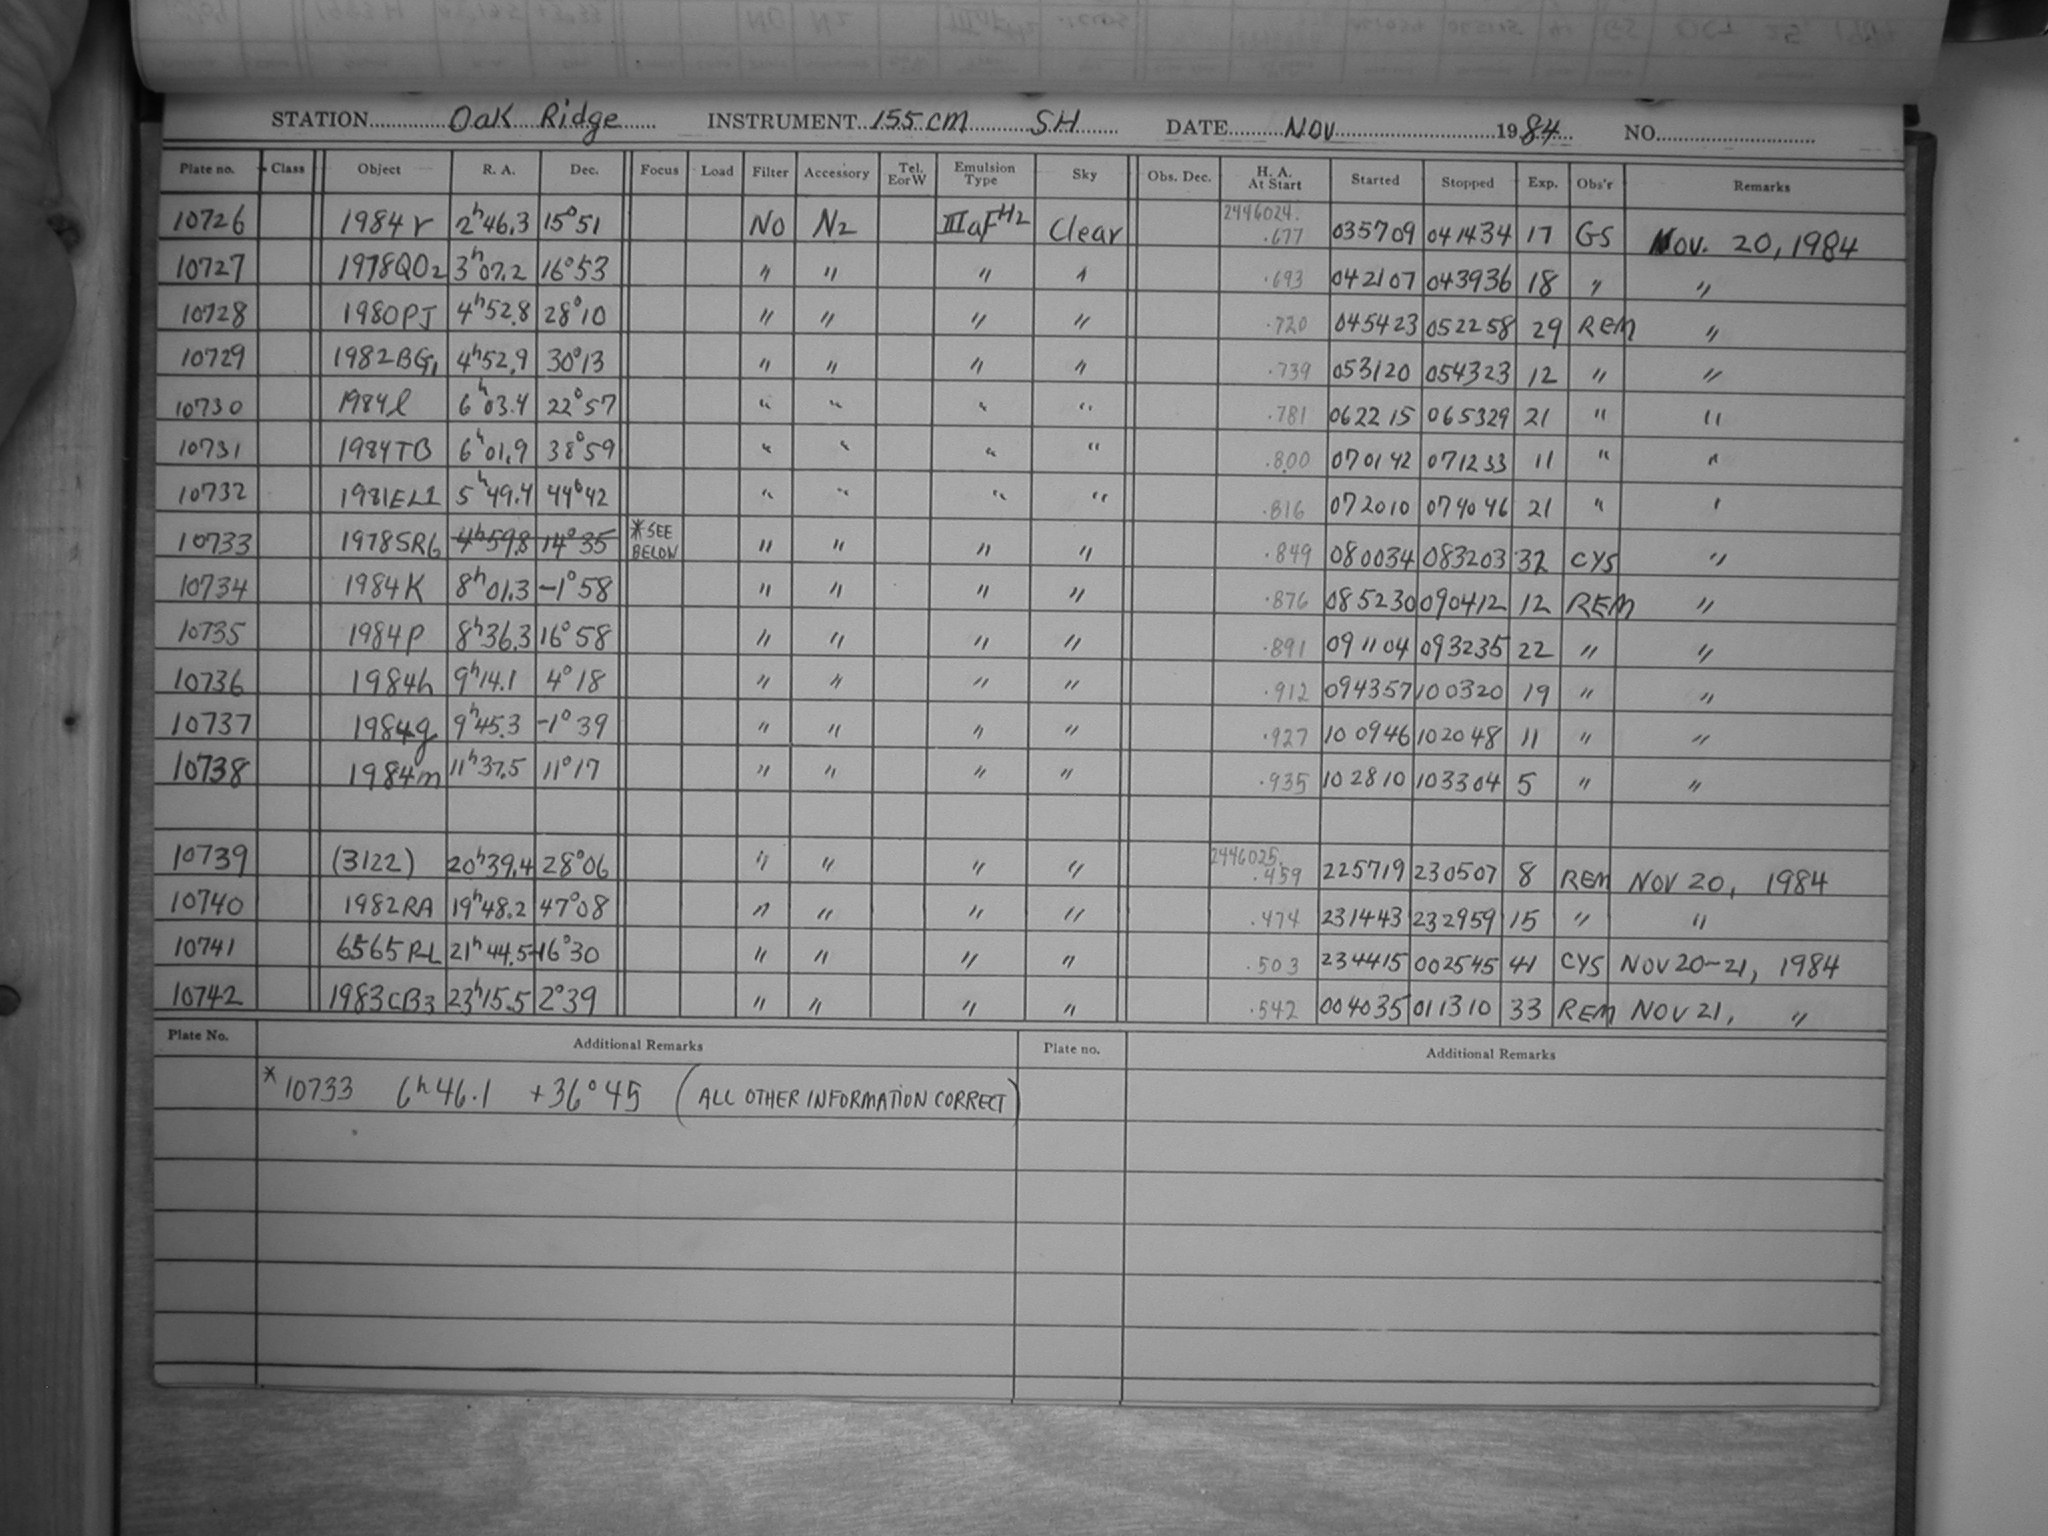 STATION Oak Ridge INSTRUMENT 155 cm SH DATE Nov 1984 NO
Plate no. Class Object R. A. Dec. Focus Load Filter Accessory Tel. E or W Emulsion Type Sky Obs. Dec. H. A. At Start Started Stopped Exp. Obs'r Remarks
10726 1984r 2h46.3 15°51 NO N2 IIIaF H2 Clear 2446024. .677 035709 041434 17 GS Nov. 20, 1984
10727 1978QO2 3h07.2 16°53 " " " " .693 042107 043936 18 " "
10728 1980PJ 4h52.8 28°10 " " " " .720 045423 052258 29 REM "
10729 1982BG1 4h52.9 30°13 " " " " .739 053120 054323 12 " "
10730 1984l 6h03.4 22°57 " " " " .781 062215 065329 21 " "
10731 1984TB 6h01.9 38°59 " " " " .800 070142 071233 11 " "
10732 1981EL1 5h49.4 44°42 " " " " .816 072010 074046 21 " "
10733 1978SR6 4h59.8 14°35 *SEE BELOW " " " " .849 080034 083203 32 CYS "
10734 1984K 8h01.3 -1°58 " " " " .876 085230 090412 12 REM "
10735 1984P 8h36.3 16°58 " " " " .891 091104 093235 22 " "
10736 1984h 9h14.1 4°18 " " " " .912 094357 100320 19 " "
10737 1984g 9h45.3 -1°39 " " " " .927 100946 102048 11 " "
10738 1984m 11h37.5 11°17 " " " " .935 102810 103304 5 " "
10739 (3122) 20h39.4 28°06 " " " " 2446025. .459 225719 230507 8 REM NOV 20, 1984
10740 1982RA 19h48.2 47°08 " " " " .474 231443 232959 15 " "
10741 6565 PL 21h44.5 -16°30 " " " " .503 234415 002545 41 CYS NOV 20-21, 1984
10742 1983CB3 23h15.5 2°39 " " " " .542 004035 011310 33 REM NOV 21, "
Plate No. Additional Remarks Plate no. Additional Remarks
*10733 6h46.1 +36°45 (ALL OTHER INFORMATION CORRECT)